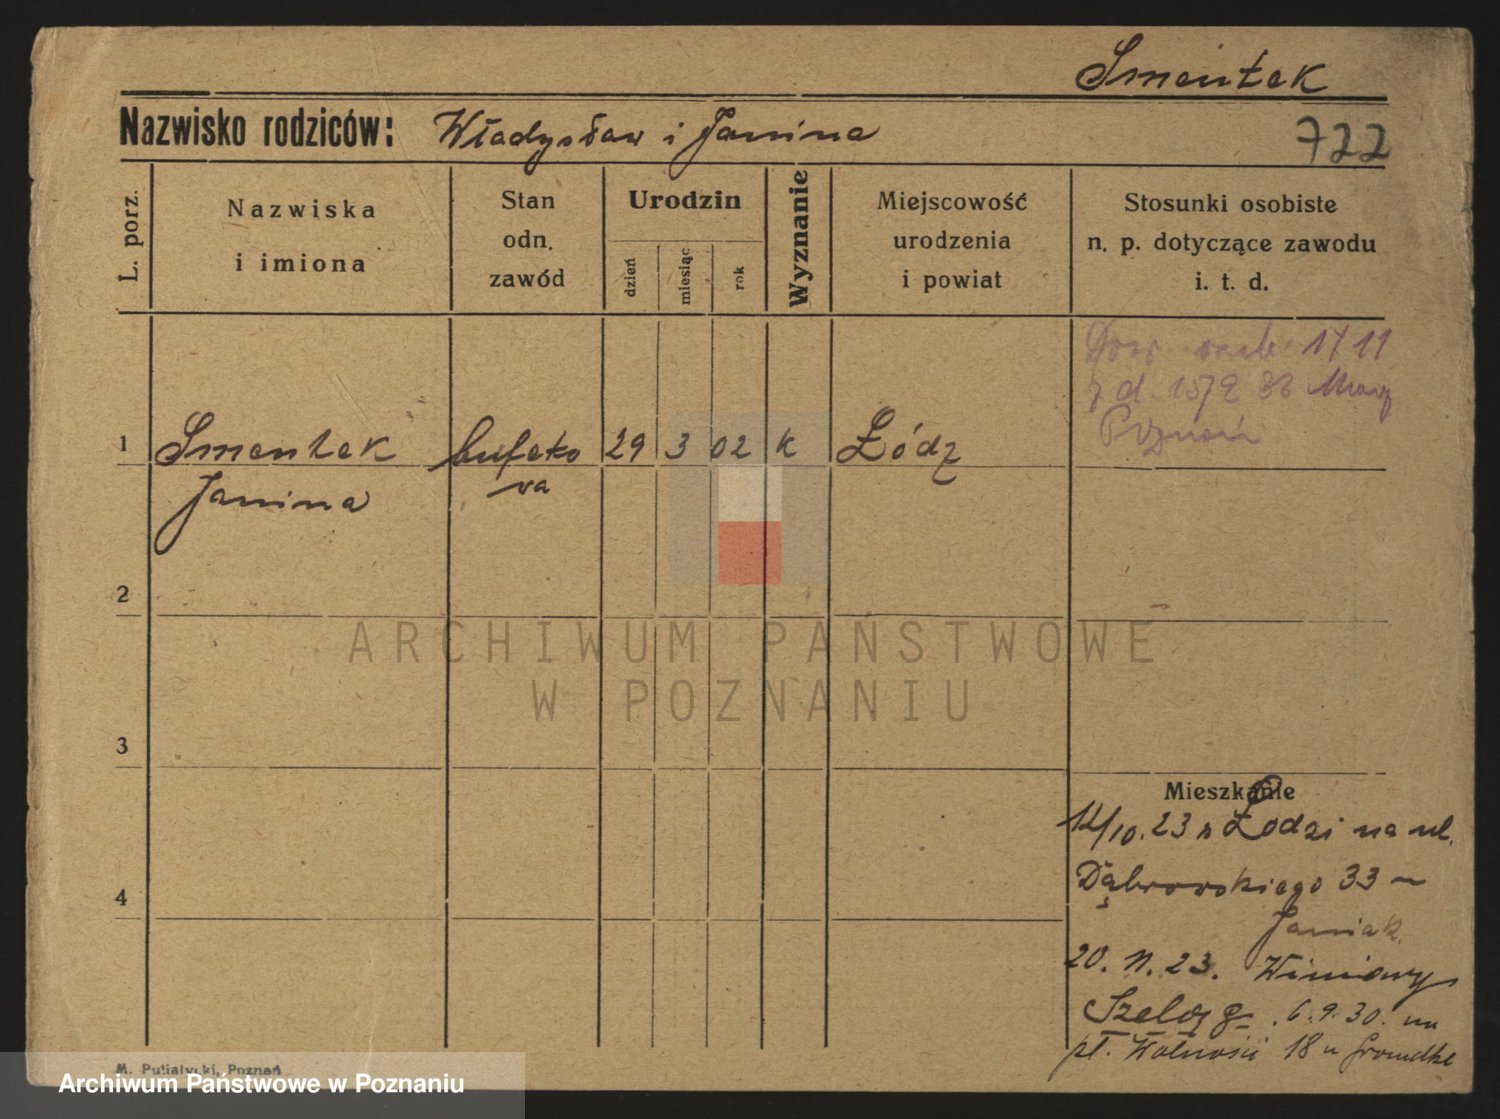 Smentek
Nazwisko rodziców: Władysław i Janina
722
L. porz.
Nazwiska
i imiona
Stan
odn.
zawód
Urodzin
dzień
miesiąc
rok
Wyznanie
Miejscowość
urodzenia
i powiat
Stosunki osobiste
n. p. dotyczące zawodu
i. t. d.
1 Smentek bufeto 29 3 02 k Łódź
Janina wa
Poznań
2
3
4
Mieszkanie
14/10.23 z Łodzi na ul.
Dąbrowskiego 33
Janiak.
20. 11. 23. Winiary
Szeląg. 6.9.30. na
pl. Wolności 18 u
M. Putiatycki, Poznań
ARCHIWUM PAŃSTWOWE
W POZNANIU
Archiwum Państwowe w Poznaniu